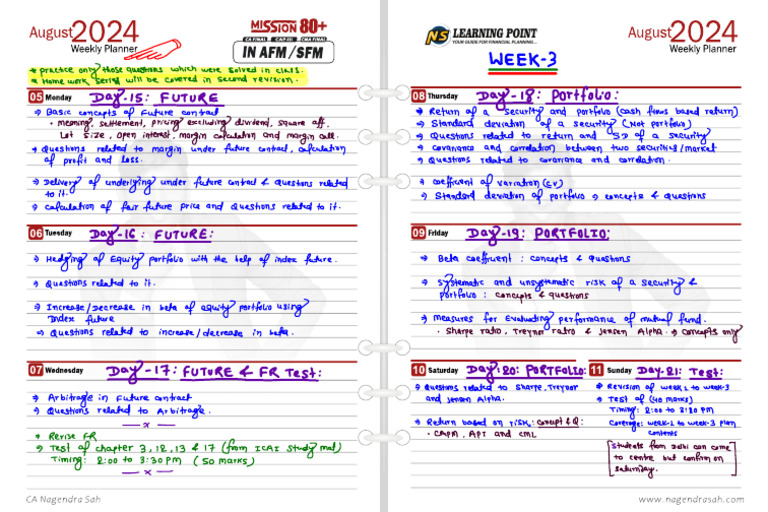 August2024
Weekly Planner
MISSION 80+
CA FINAL CMA FINAL
IN AFM/SFM
→ practice only those questions which were solved in class.
→ Home work series will be covered in second revision.
05 Monday Day-15: FUTURE
→ Basic concepts of Future contract
• meaning, settlement, pricing excluding dividend, square off.
Lot size, open interest, margin calculation and margin call.
→ Questions related to margin under future contract, calculation
of profit and loss.
→ Delivery of underlying under future contract & Questions related
to it.
→ Calculation of fair future price and Questions related to it.
06 Tuesday Day-16: FUTURE:
→ Hedging of Equity portfolio with the help of index future.
→ Questions related to it.
→ Increase/Decrease in beta of equity portfolio using
Index future
→ Questions related to increase/decrease in beta.
07 Wednesday Day-17: FUTURE & FR Test:
→ Arbitrage in Future contract
→ Questions related to Arbitrage.
—x—
→ Revise FR
→ Test of chapter 3, 12, 13 & 17 (from ICAI Study mat)
Timing: 2:00 to 3:30 PM (50 marks)
—x—
CA Nagendra Sah
NS LEARNING POINT
YOUR GUIDE FOR FINANCIAL PLANNING...
August2024
Weekly Planner
WEEK-3
08 Thursday Day-18: Portfolio:
→ Return of a security and portfolio (cash flows based return)
→ Standard deviation of a security (Not portfolio)
→ Questions related to return and SD of a security
→ covariance and correlation between two securities/market
→ Questions related to covariance and correlation.
→ coefficient of variation (cv)
→ Standard deviation of portfolio → concepts & questions
09 Friday Day-19: PORTFOLIO:
→ Beta coefficient: concepts & questions
→ systematic and unsystematic risk of a security &
portfolio: concepts & questions
→ measures for Evaluating performance of mutual fund.
• Sharpe ratio, Treynor ratio & Jensen Alpha. → concepts only
10 Saturday Day:20: PORTFOLIO:
→ Questions related to Sharpe, Treynor
and Jensen Alpha.
→ Return based on risk: concept & Q:
• CAPM, APT and CML
11 Sunday Day-21: Test:
→ Revision of week-2 to week-3
→ Test of (40 marks)
Timing: 2:00 to 3:20 PM
Coverage: week-2 to week-3 plan
contents
[Students from Delhi can come
to centre but confirm on
Saturday.]
www.nagendrasah.com